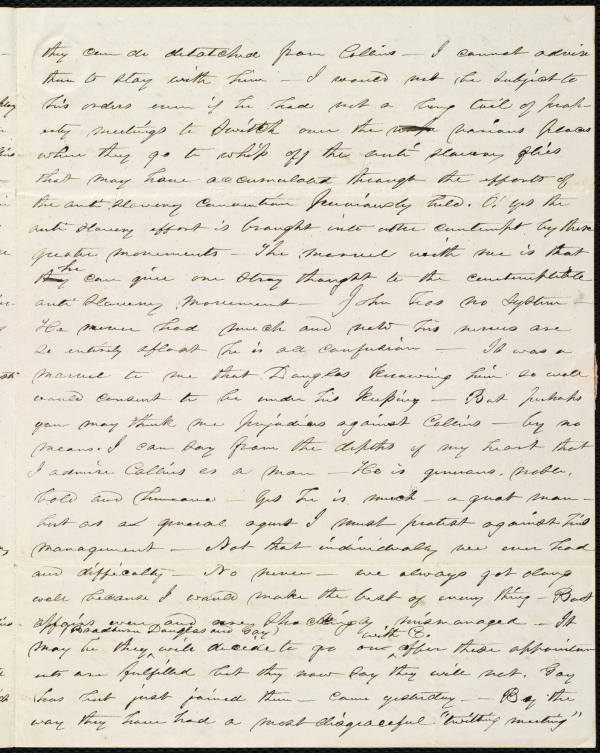 they can do detatched from Collins — I cannot advise
them to stay with him — I would not be subject to
his orders even if he had not a long tail of prop-
erty meetings to switch over the various places
where they go to whip off the anti slavery flies
that may have accumulated through the efforts of
the anti slavery convention previously held. O! yes the
anti slavery effort is brought into utter contempt by these
greater movements — The marvel with me is that
he can give one stray thought to the contemptible
anti slavery movement — John has no system —
He never had much and now his nerves are
so entirely afloat he is all confusion — It was a
marvel to me that Douglas knowing him so well
would consent to be under his keeping — But perhaps
you may think me prejudiced against Collins — by no
means. I can say from the depths of my heart that
I admire Collins as a man — He is generous, noble,
bold and humane — yes he is much — a great man —
but as a general agent I must protest against his
management — Not that individually we ever had
any difficulty — No never — we always got along
well because I would make the best of every thing — But
affairs were and are shockingly mismanaged — It
(Bradburn Douglas and Gay) with C.
may be they will decide to go on after these appointm
ents are fulfilled but they now say they will not. Gay
has but just joined them — came yesterday — By the
way they have had a most disgraceful " meeting"